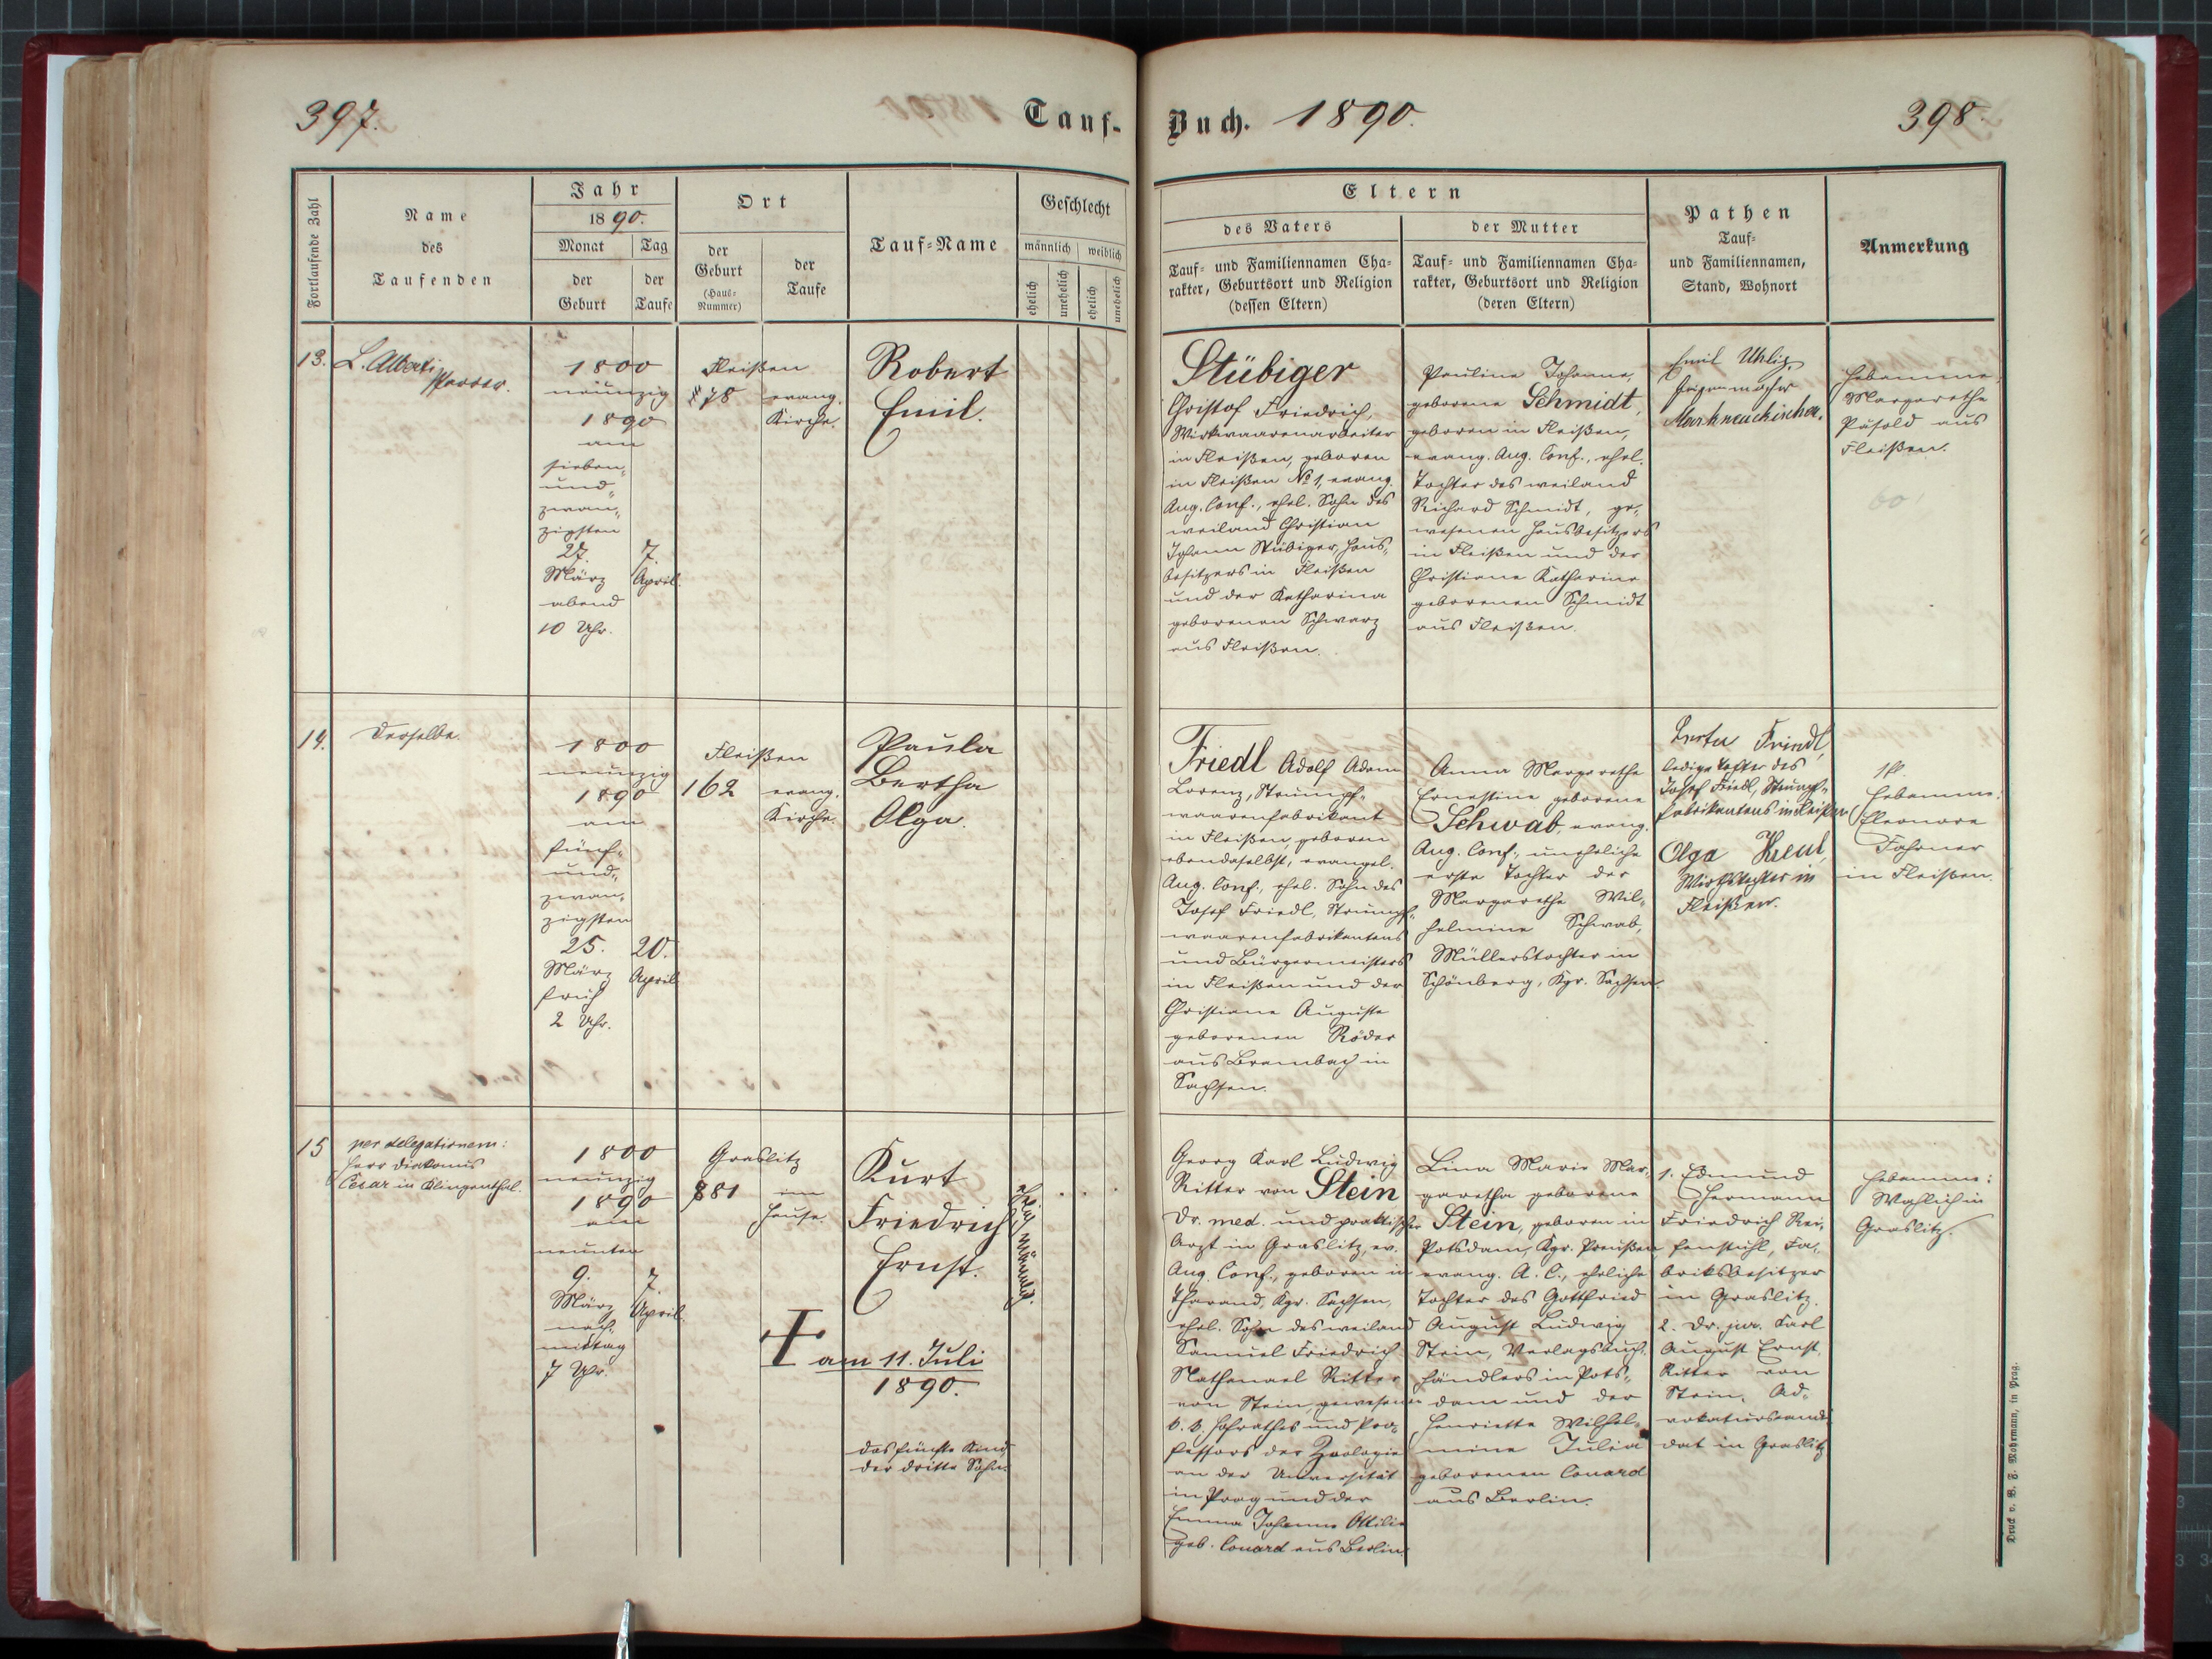 397.
Tauf-
Buch. 1890.
398.
Fortlaufende Zahl
Name
des
Taufenden
Jahr
1890.
Monat
Tag
der
Geburt
der
Taufe
Ort
der
Geburt
(Haus-
Nummer)
der
Taufe
Tauf-Name
Geschlecht
männlich
weiblich
ehelich
unehelich
ehelich
unehelich
Eltern
des Vaters
Tauf- und Familiennamen Cha-
rakter, Geburtsort und Religion
(dessen Eltern)
der Mutter
Tauf- und Familiennamen Cha-
rakter, Geburtsort und Religion
(deren Eltern)
Pathen
Tauf-
und Familiennamen,
Stand, Wohnort
Anmerkung
13.
L. Alberti
Pfarrer.
1800
neunzig
1890
am
sieben-
und-
zwan-
zigsten
27.
März
abend
10 Uhr.
7.
April.
Fleißen
evang.
Kirche.
Robert
Emil.
Stübiger
Christof Friedrich,
Wirkwaarenarbeiter
in Fleißen, geboren
in Fleißen No 1, evang.
Aug. Conf., ehel. Sohn des
weiland Christian
Johann Stübiger, Haus-
besitzers in Fleißen
und der Katharina
geborenen Schwarz
aus Fleißen.
Pauline Johanne,
geborene Schmidt,
geboren in Fleißen,
evang. Aug. Conf., ehel.
Tochter des weiland
Richard Schmidt, ge-
wesenen Hausbesitzers
in Fleißen und der
Christiane Katharina
geborenen Schmidt
aus Fleißen.
Emil Uhlig,
Geigenmacher
Markneukirchen.
Hebamme:
Margarethe
Päsold aus
Fleißen.
14.
Derselbe.
1800
neunzig
1890
am
fünf-
und-
zwan-
zigsten
25.
März
früh
2 Uhr.
20.
April
Fleißen
162
evang.
Kirche.
Paula
Bertha
Olga.
Friedl Adolf Adam
Lorenz, Strumpf-
waarenfabrikant
in Fleißen, geboren
ebendaselbst, evangel.
Aug. Conf., ehel. Sohn des
Josef Friedl, Strumpf-
waarenfabrikantens
und Bürgermeisters
in Fleißen und der
Christiane Auguste
geborenen Röder
aus Brambach in
Sachsen.
Anna Margarethe
Ernestine geborene
Schwab, evang.
Aug. Conf., uneheliche
erste Tochter der
Margarethe Wil-
helmine Schwab,
Müllerstochter in
Schönberg, Kgr. Sachsen.
Berta Friedl,
ledige Tochter des
Josef Friedl, Strumpf-
fabrikantens in Fleißen
Olga
Wirthstochter in
Fleißen.
Hebamme:
Eleonore
Fahrner
in Fleißen.
15
per delegationem:
Herr Diakonus
Cesar in Klingenthal.
1800
neunzig
1890
am
neunten
9.
März
nach-
mittag
7 Uhr.
7.
April.
Graslitz
881
im
Hause.
Kurt
Friedrich
Ernst.
am 11. Juli
1890.
das fünfte Kind
der dritte Sohn.
Georg Karl Ludwig
Ritter von Stein
Dr. med. und praktischer
Arzt in Graslitz, ev.
Aug. Conf., geboren in
Tharand, Kgr. Sachsen,
ehel. Sohn des weiland
Samuel Friedrich
Nathanael Ritter
von Stein, gewesenen
k. k. Hofrathes und Pro-
fessors der Zoologie
an der Universität
in Prag und der
Emma Johanna Ottilie
geb. Conard aus Berlin.
Lina Marie Mar-
garetha geborene
Stein, geboren in
Potsdam, Kgr. Preußen,
evang. A. C., eheliche
Tochter des Gottfried
August Ludwig
Stein, Verlagsbuch-
händlers in Pots-
dam und der
Henriette Wilhel-
mine Julia
geborenen Conard
aus Berlin.
1. Edmund
Hermann
Friedrich Kei-
lenstuhl, Fa-
briksbesitzer
in Graslitz.
2. Dr. jur. Karl
August Ernst
Ritter von
Stein, Ad-
vokaturscandi-
dat in Graslitz
Hebamme:
in
Graslitz.
Druck v. B. F. Mohrmann, in Prag.